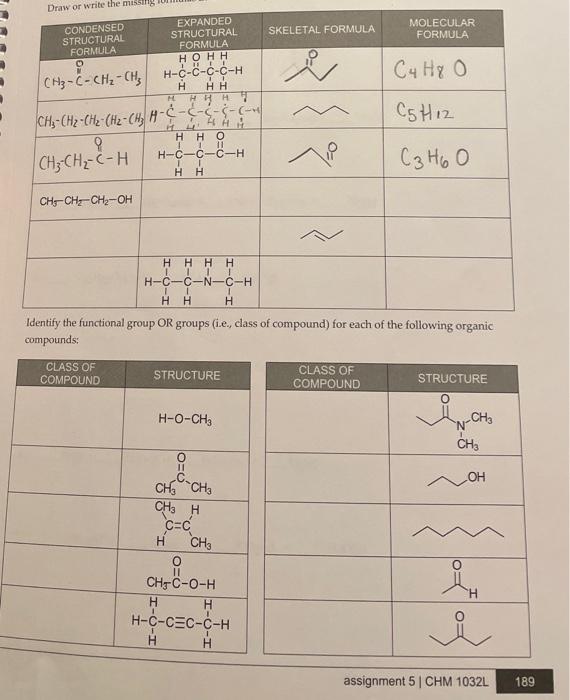 Draw or write the missing
CONDENSED STRUCTURAL FORMULA
EXPANDED STRUCTURAL FORMULA
SKELETAL FORMULA
MOLECULAR FORMULA
O
CH3-C-CH2-CH3
H O H H
H-C-C-C-C-H
H H H
O
C4H8O
CH3-CH2-CH2-CH2-CH3
H H H H H
H-C-C-C-C-C-H
H H H H H
C5H12
O
CH3-CH2-C-H
H H O
H-C-C-C-H
H H
O
C3H6O
CH3-CH2-CH2-OH
H H H H
H-C-C-N-C-H
H H H
Identify the functional group OR groups (i.e., class of compound) for each of the following organic
compounds:
CLASS OF COMPOUND
STRUCTURE
CLASS OF COMPOUND
STRUCTURE
H-O-CH3
O
N-CH3
CH3
O
C
CH3 CH3
OH
CH3 H
C=C
H CH3
O
CH3-C-O-H
O
H
H H
H-C-C≡C-C-H
H H
O
assignment 5 | CHM 1032L 189